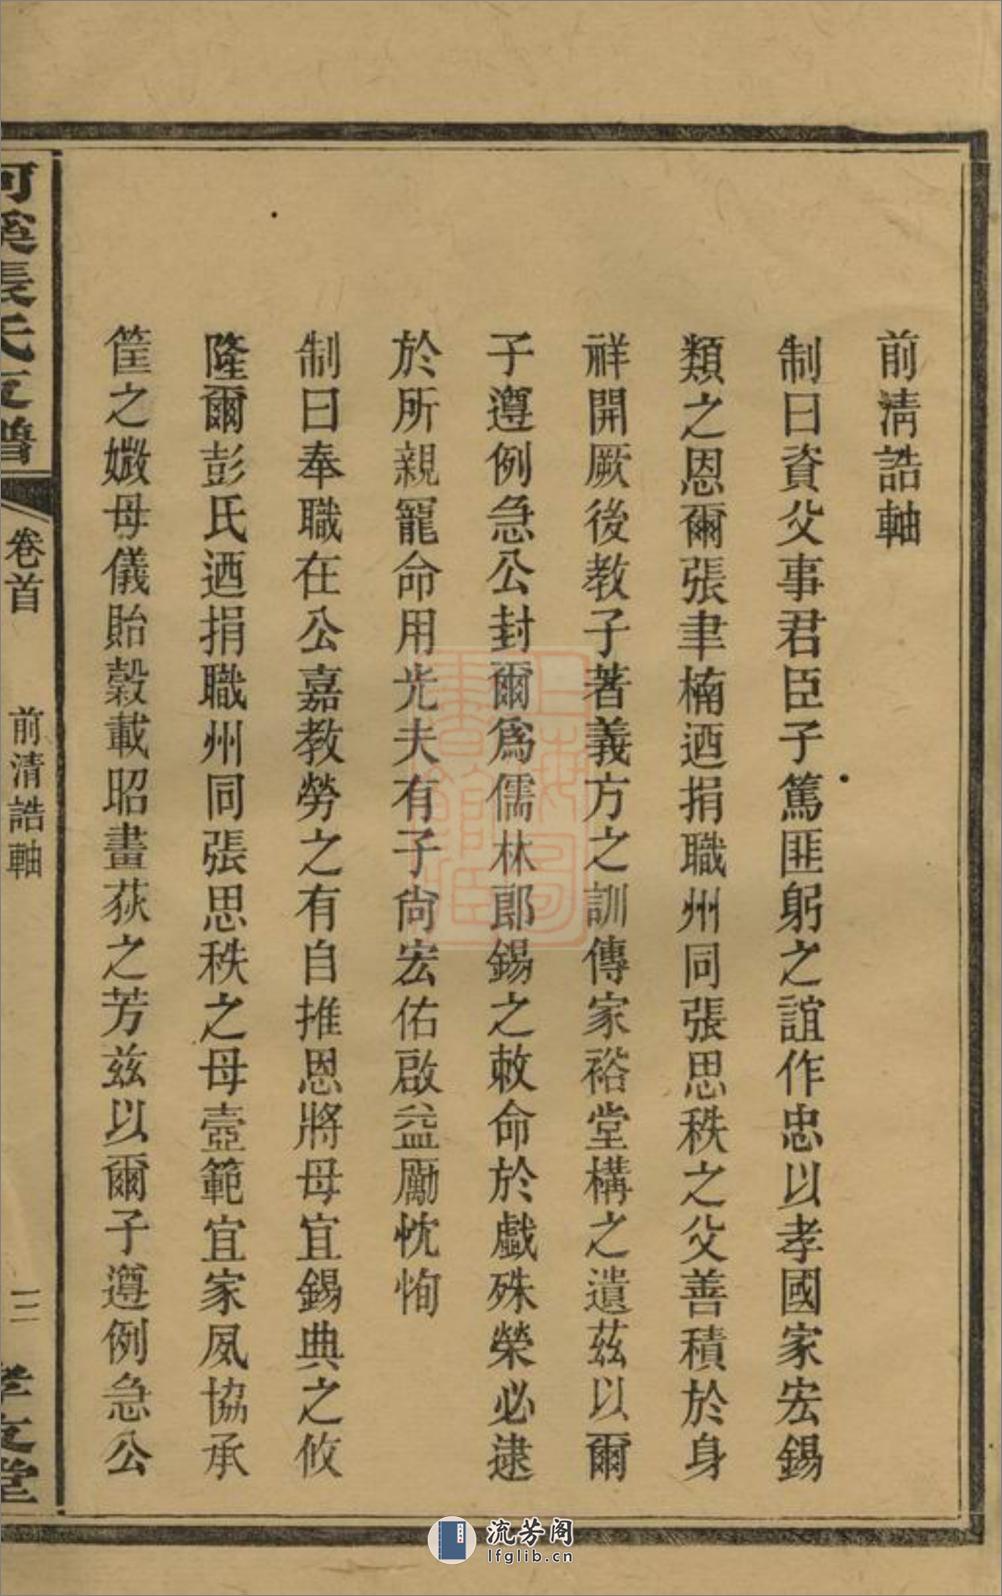 前清誥軸
制曰資父事君臣子篤匪躬之誼作忠以孝國家宏錫
類之恩爾張聿楠迺捐職州同張思秩之父善積於身
祥開厥後教子著義方之訓傳家裕堂構之遺茲以爾
子遵例急公封爾為儒林郎錫之敕命於戲殊榮必逮
於所親寵命用光夫有子尙宏佑啟益勵忱恂
制曰奉職在公嘉教勞之有自推恩將母宜錫典之攸
隆爾彭氏迺捐職州同張思秩之母壼範宜家夙協承
筐之媺母儀貽穀載昭畫荻之芳茲以爾子遵例急公
河溪張氏支譜
卷首
前清誥軸
三
孝友堂
流芳阁
lfglib.cn